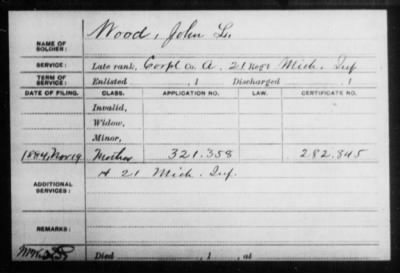 NAME OF SOLDIER: Wood, John L.
SERVICE: Late rank, Corpl Co. A, 21 Reg't Mich. Inf
TERM OF SERVICE: Enlisted , 1 Discharged , 1
DATE OF FILING. CLASS. APPLICATION NO. LAW. CERTIFICATE NO.
Invalid,
Widow,
Minor,
1884, Nov 19 Mother 321.358 282.845
ADDITIONAL SERVICES: A 21 Mich. Inf.
REMARKS:
Died , 1 , at